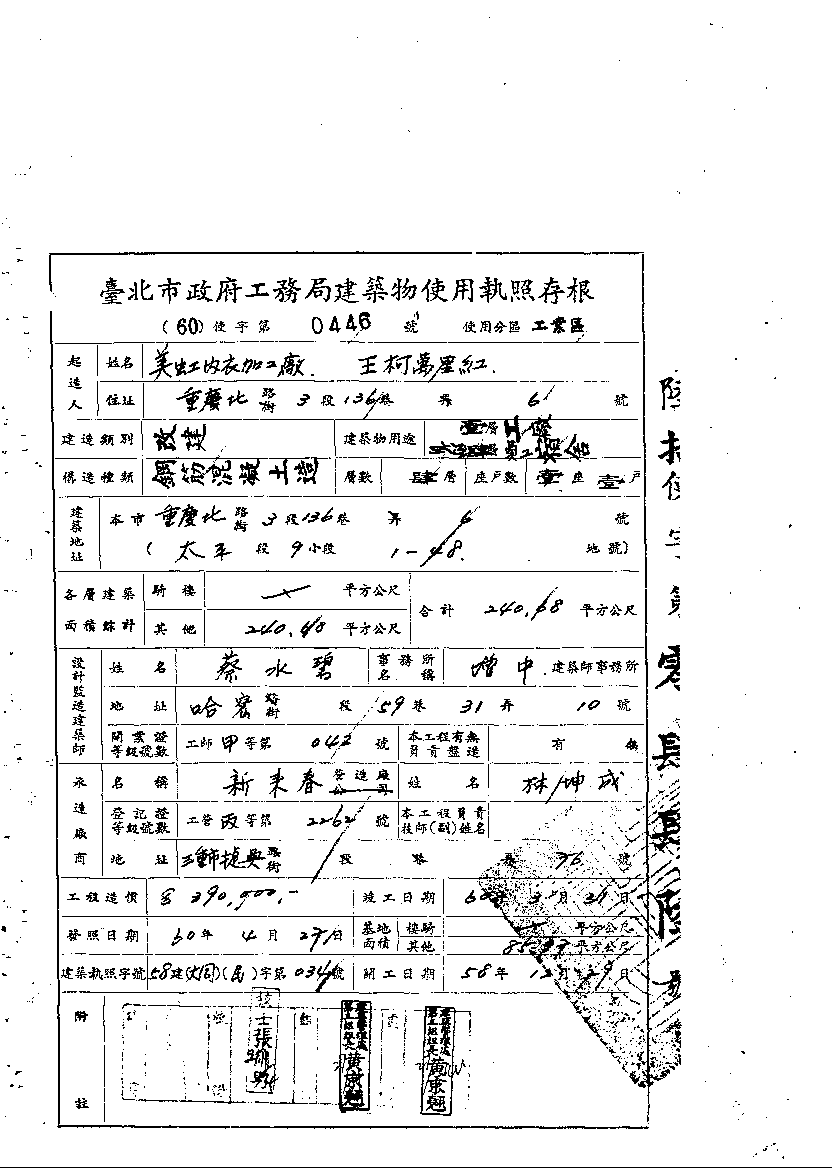 臺北市政府工務局建築物使用執照存根
(60)使字第 0446 號 使用分區 工業區
起造人 姓名 美虹內衣加工廠. 王柯萬星紅.
住址 重慶北 路街 3 段 136 巷 弄 6 號
建造類別 改建 建築物用途 壹層 工廠
員工宿舍
構造種類 鋼筋混凝土造 層數 肆層 座戶數 壹座 壹戶
建築地址 本市 重慶北 路街 3 段 136 巷 弄 6 號
( 太平 段 9 小段 1-48. 地號)
各層建築面積綜計 騎樓 平方公尺 合計 240.48 平方公尺
其他 240.48 平方公尺
設計監造建築師 姓名 蔡水碧 事務所名稱 增中 建築師事務所
地址 哈密 路街 段 59 巷 31 弄 10 號
開業證等級號數 工師 甲 等第 042 號 本工程有無負責監造 有 無
承造廠商 名稱 新来春 營造廠公司 姓名 林坤成
登記證等級號數 工營 丙 等第 2262 號 本工程負責技師(副)姓名
地址 三重市 路街 段 巷 弄 號
工程造價 390,000,- 竣工日期 60年 3月 日
發照日期 60年 4月 27日 基地面積 樓騎 平方公尺
其他 平方公尺
建築執照字號 58建(大同)(民)字第 034 號 開工日期 58年 12月 29日
附註
陸拾使字第零肆肆陸號